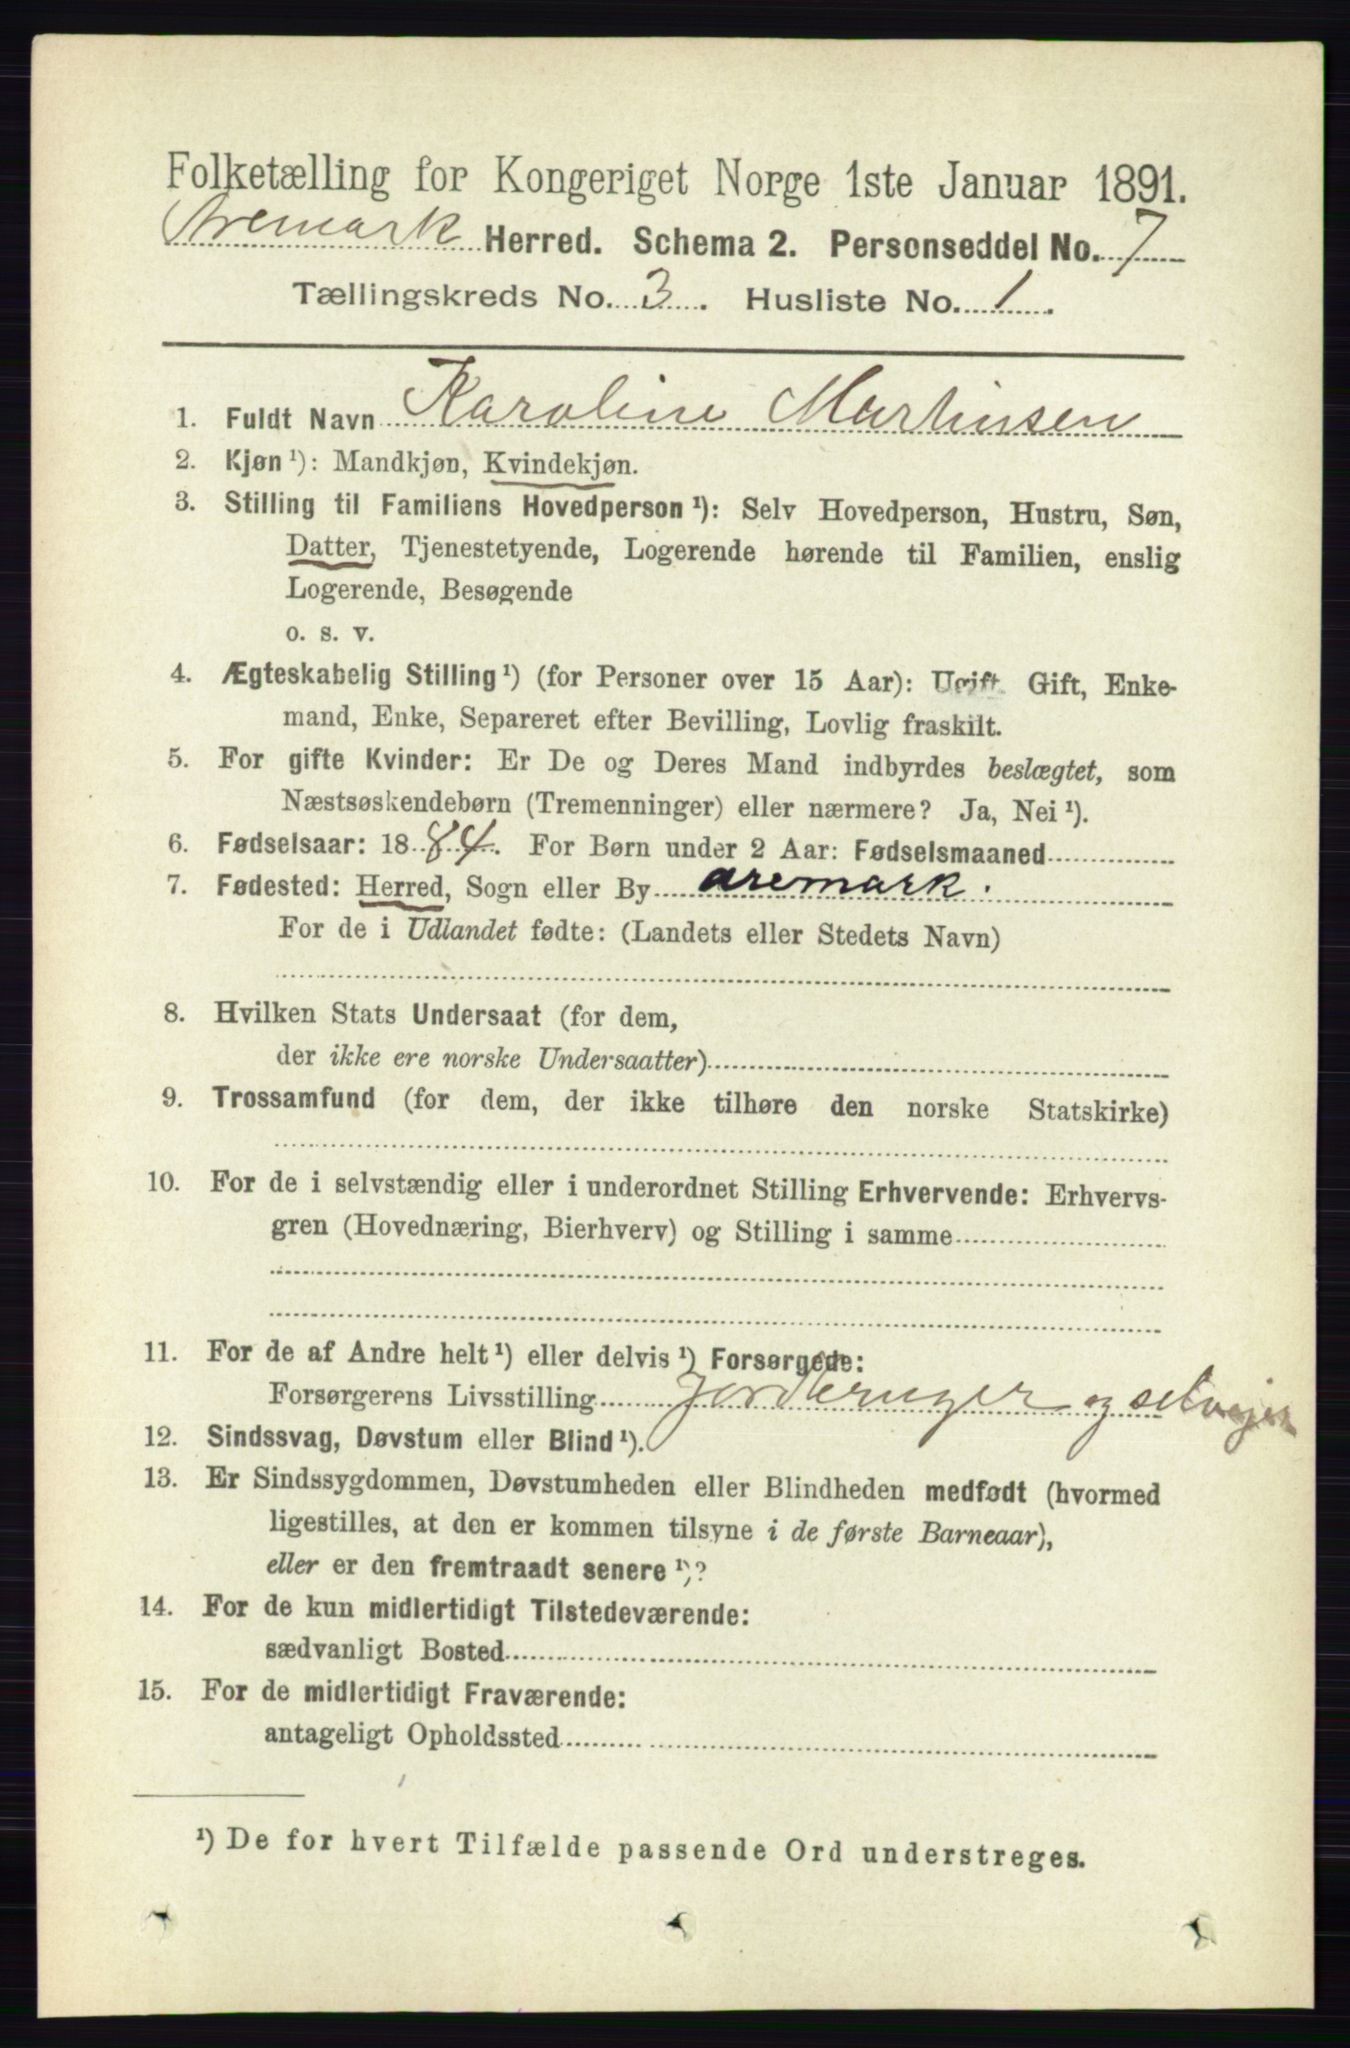 Folketælling for Kongeriget Norge 1ste Januar 1891.
Aremark Herred. Schema 2. Personseddel No. 7
Tællingskreds No. 3. Husliste No. 1.
1. Fuldt Navn Karoline Martinsen
2. Kjøn ¹): Mandkjøn, Kvindekjøn.
3. Stilling til Familiens Hovedperson ¹): Selv Hovedperson, Hustru, Søn,
Datter, Tjenestetyende, Logerende hørende til Familien, enslig
Logerende, Besøgende
o. s. v.
4. Ægteskabelig Stilling ¹) (for Personer over 15 Aar): Ugift, Gift, Enke-
mand, Enke, Separeret efter Bevilling, Lovlig fraskilt.
5. For gifte Kvinder: Er De og Deres Mand indbyrdes beslægtet, som
Næstsøskendebørn (Tremenninger) eller nærmere? Ja, Nei ¹).
6. Fødselsaar: 1884. For Børn under 2 Aar: Fødselsmaaned
7. Fødested: Herred, Sogn eller By aremark.
For de i Udlandet fødte: (Landets eller Stedets Navn)
8. Hvilken Stats Undersaat (for dem,
der ikke ere norske Undersaatter)
9. Trossamfund (for dem, der ikke tilhøre den norske Statskirke)
10. For de i selvstændig eller i underordnet Stilling Erhvervende: Erhvervs-
gren (Hovednæring, Bierhverv) og Stilling i samme
11. For de af Andre helt ¹) eller delvis ¹) Forsørgede:
Forsørgerens Livsstilling Jordbruger og selveier
12. Sindssvag, Døvstum eller Blind ¹).
13. Er Sindssygdommen, Døvstumheden eller Blindheden medfødt (hvormed
ligestilles, at den er kommen tilsyne i de første Barneaar),
eller er den fremtraadt senere ¹)?
14. For de kun midlertidigt Tilstedeværende:
sædvanligt Bosted
15. For de midlertidigt Fraværende:
antageligt Opholdssted
¹) De for hvert Tilfælde passende Ord understreges.